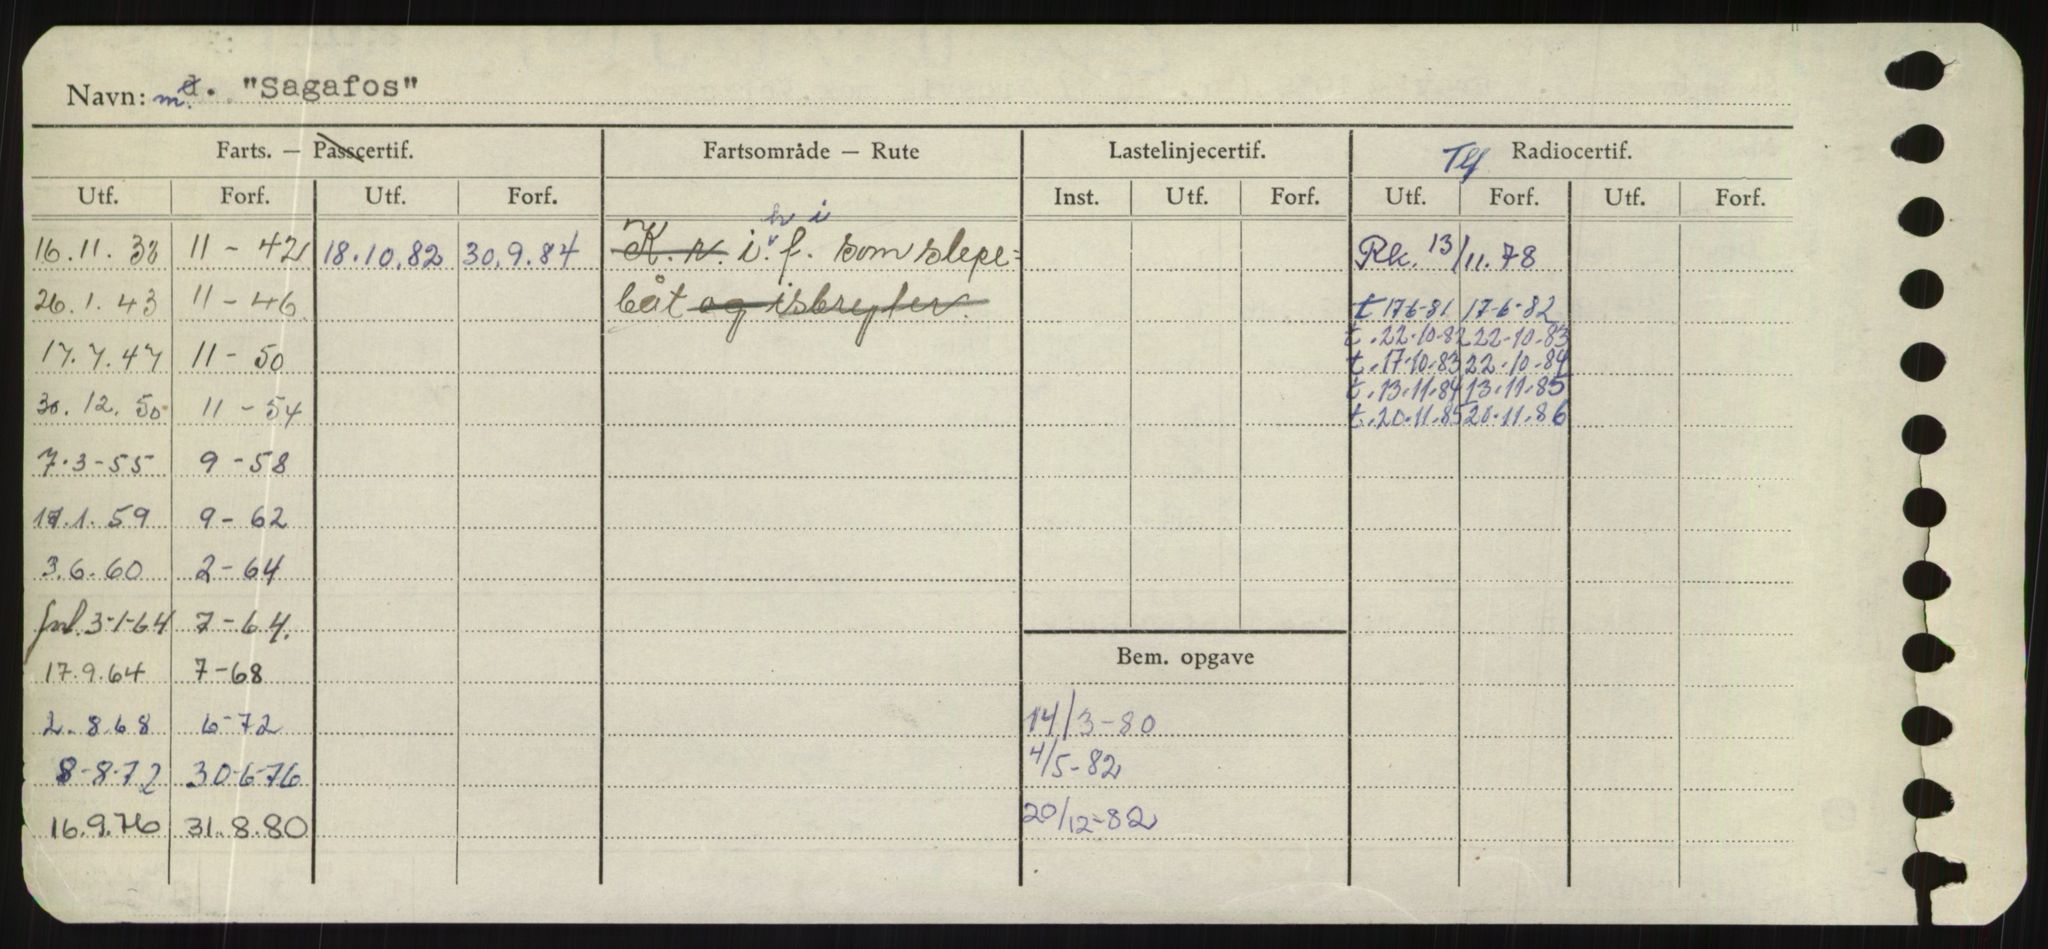 Navn: m. "Sagafos"
Farts. — Passcertif. Fartsområde — Rute Lastelinjecertif. Tlf Radiocertif.
Utf. Forf. Utf. Forf. Inst. Utf. Forf. Utf. Forf. Utf. Forf.
16.11.38 11-42 18.10.82 30.9.84 K.r. i.f. som slepe= Rk. 13/11.78
26.1.43 11-46 båt og isbryter. t 17-6-81 17-6-82
t. 22-10-82 22-10-83
17.7.47 11-50 t. 17-10-83 22-10-84
t. 13.11.84 13.11.85
30.12.50 11-54 t. 20.11.85 20.11.86
7.3-55 9-58
1.59 9-62
3.6.60 2-64
3-1-64 7-64.
17.9.64 7-68 Bem. opgave
2.8.68 6-72 14/3-80
8-8-72 30-6-76 4/5-82
16.9.76 31.8.80 20/12-82